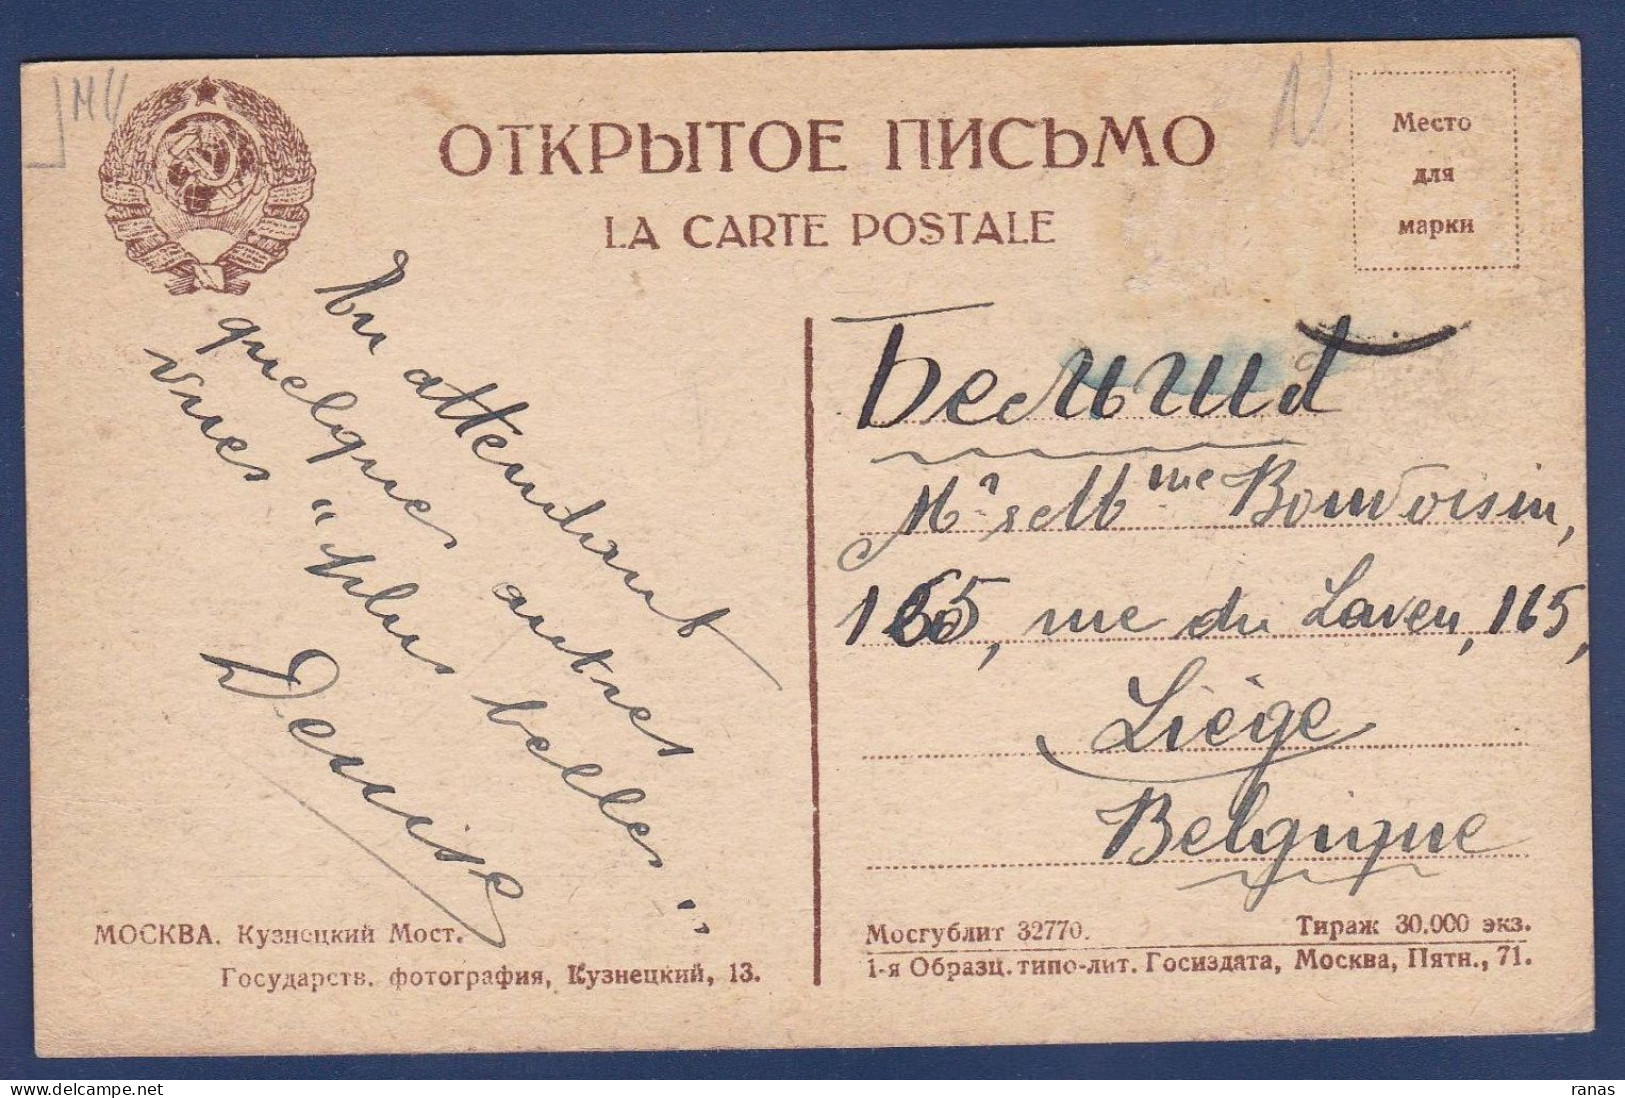 ОТКРЫТОЕ ПИСЬМО
LA CARTE POSTALE
Место
для
марки
En attendant
quelques autres
vues "plus belles".
Denise
Бельгия
Mr & Mme Bonvoisin,
165, rue du Laveu, 165,
Liège
Belgique
МОСКВА. Кузнецкий Мост.
Государств. фотография, Кузнецкий, 13.
Мосгублит 32770. Тираж 30.000 экз.
1-я Образц. типо-лит. Госиздата, Москва, Пятн., 71.
ranas